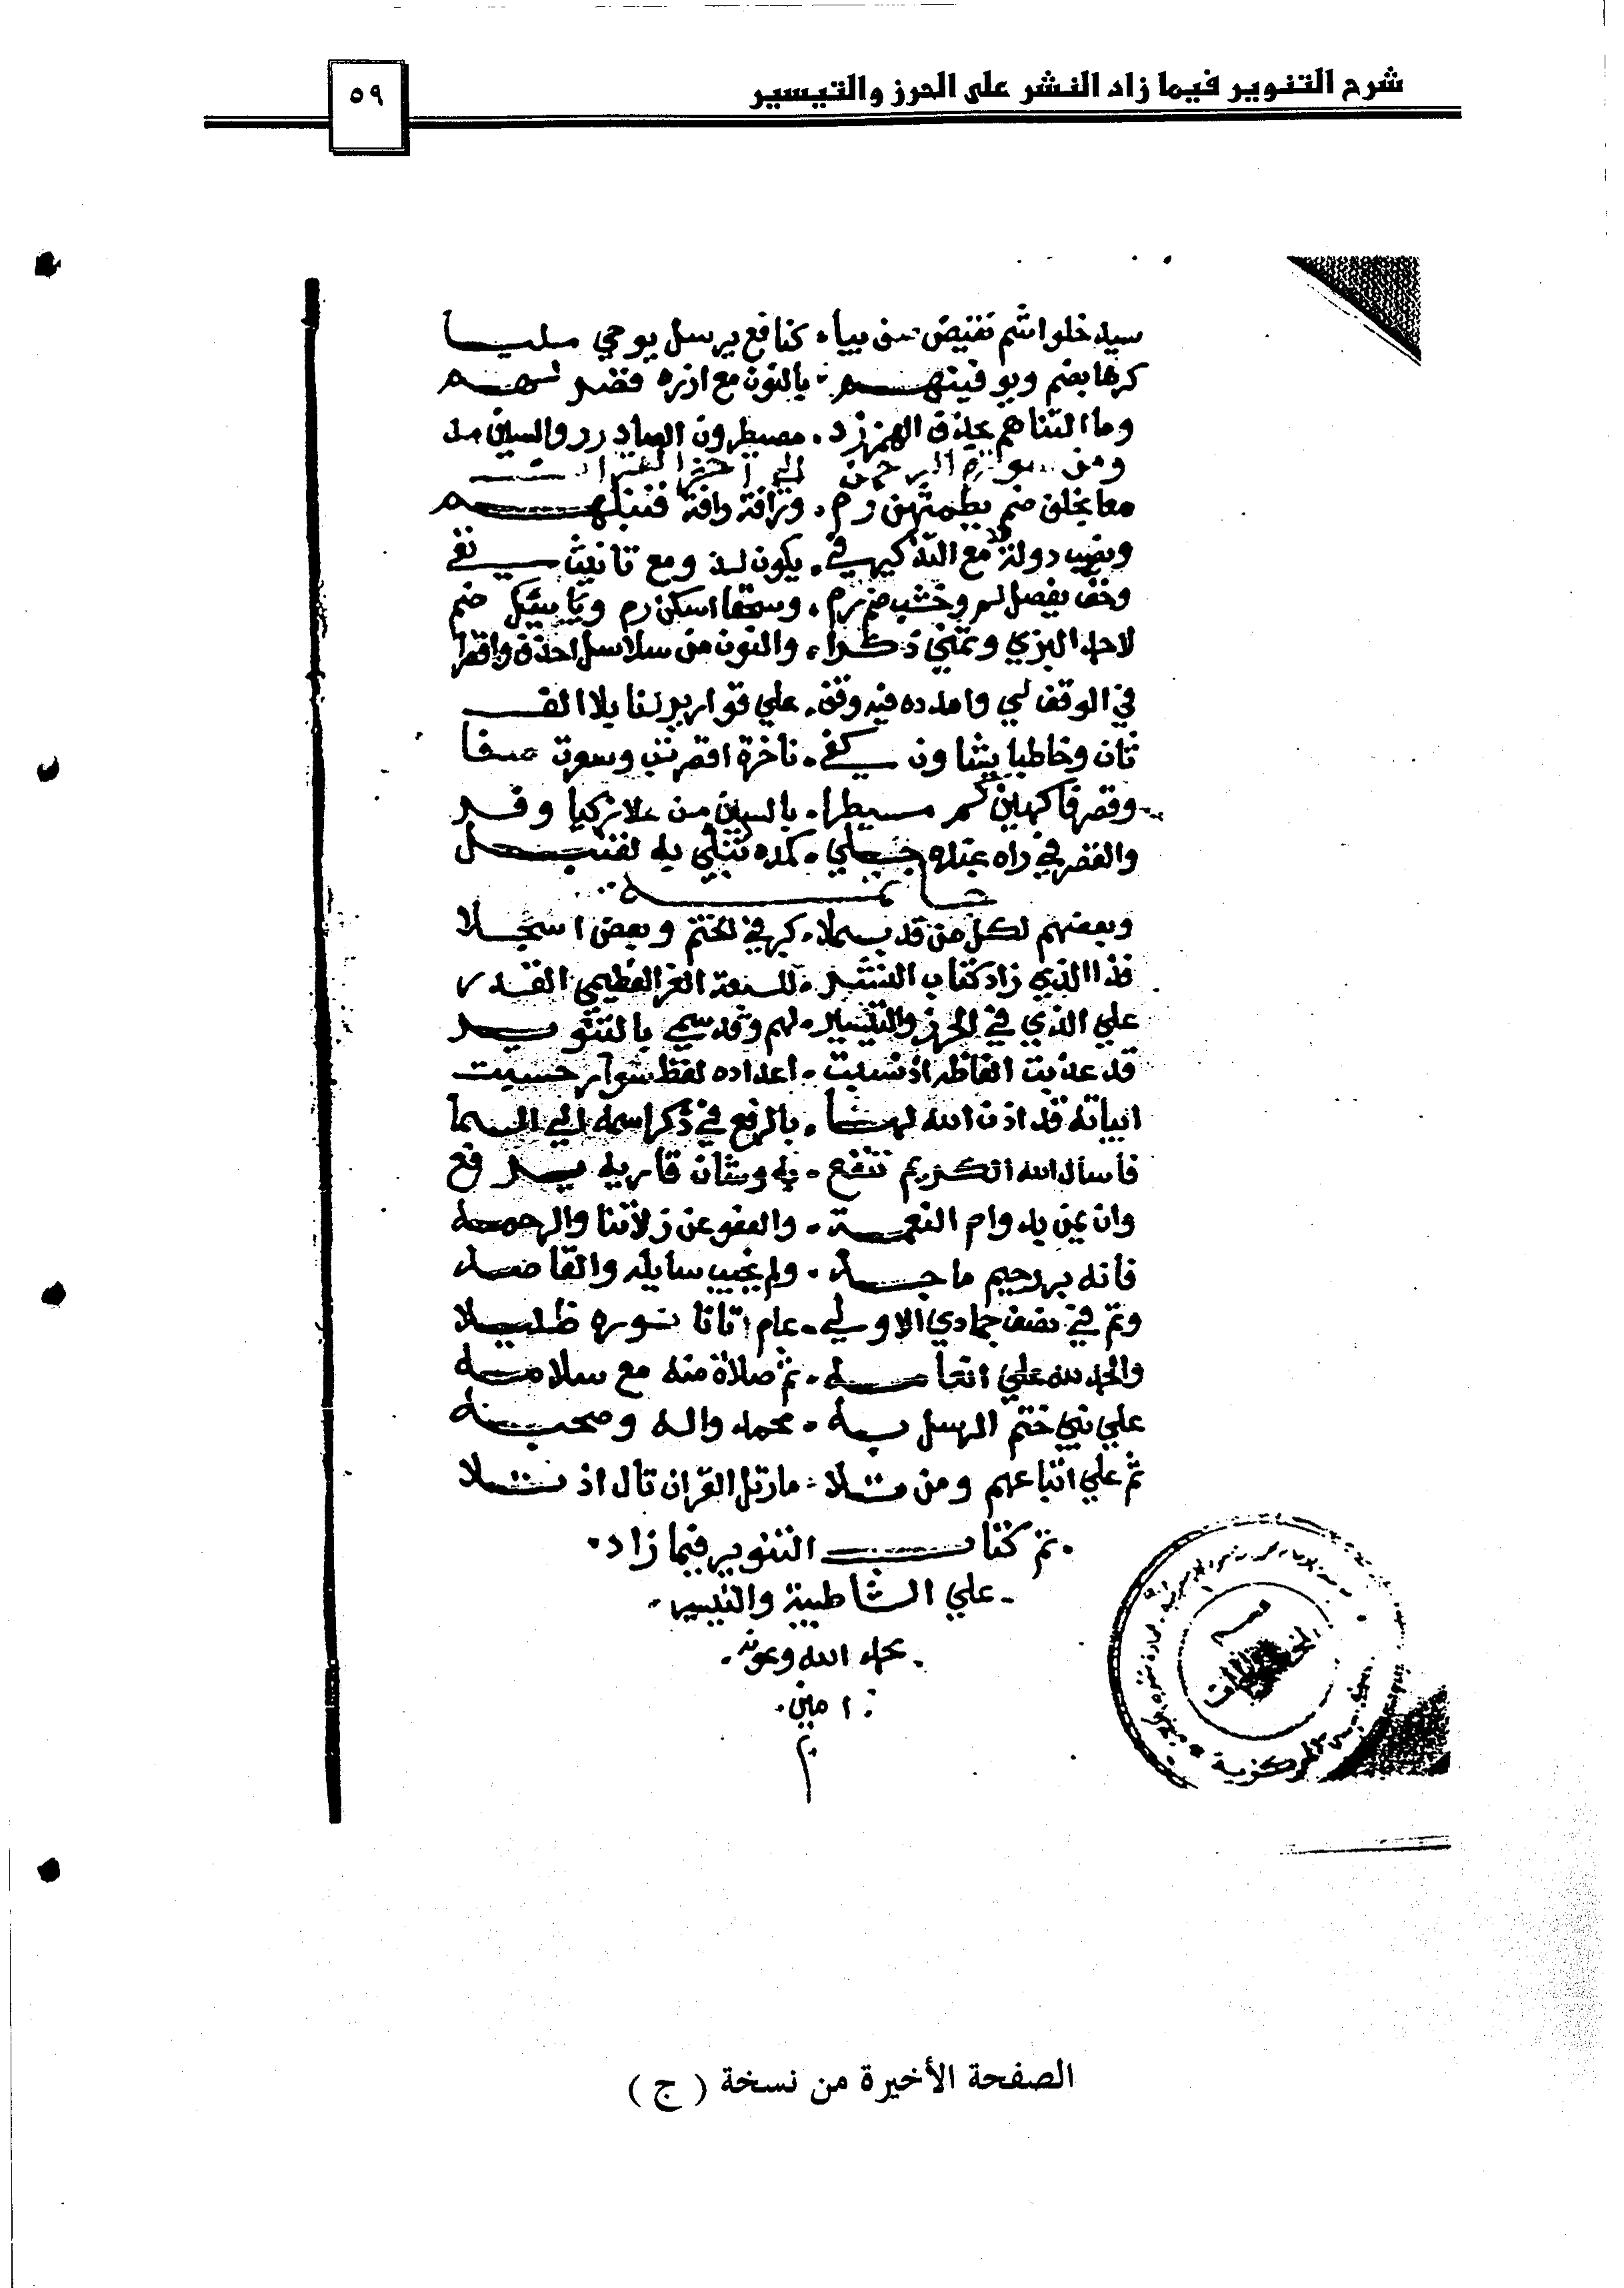 شرح التنوير فيما زاد النشر على الحرز والتيسير
٥٩
سيدخلوا شم نقيض بياء كنافع يرسل يوحي مليا
كرها بضم ويوفينهم بالنون مع ازره فضر لهم
وما التناهم بحذف الهمز زد مصيطرون الصاد رد والسين مد
ومن سورة الرحمن الي آخر القران
معا بخلف ضم يطمثهن رم ورافة رافة فنبلهم
ونصب دولة مع التذكير في يكون لذ ومع تانيث نفي
وخف يفصل لم وخشب ضم زم وسحقا اسكن رم ويا يسئل ضم
لاحمد البزي وتمني ذكرا والنون من سلاسل احذف واقصرا
في الوقف لي وامدده فيه وقف علي قوارير لنا بلا الف
ثان وخاطبا يشاون كفي ناخرة اقصر تب وسعرت صفا
وقصر فاكهين كم مسيطرا بالسين من علا
والقصر في راه جلي
خاتمة
وبعضهم لكل من قد بسملا كبر في الختم وبعض اسجلا
فذا الذي زاد كتاب النشر للسبعة الغر العظيمي القدر
علي الذي في الحرز والتيسير لهم وقد سمي بالتنوير
قد عذبت الفاظه اذ نسبت اعداده لفظ حسبت
ابياته قد اذن الله لها بالرفع في ذكر اسمه الي السما
فأسأل الله الكريم ننتفع به وشان قاريه يرفع
وان يمن بدوام النعمة والعفو عن زلاتنا والرحمة
فانه بر رحيم ماجد ولم يخيب سايله والقاصد
وتم في نصف جمادي الاولي عام اتانا نوره ظليلا
والحمد لله علي اتمامه ثم صلاة منه مع سلامه
علي نبي ختم الرسل به محمد واله وصحبه
ثم علي اتباعهم ومن تلا ما رتل القران تال اذ تلا
تم كتاب التنوير فيما زاد
علي الشاطبية والتيسير
بحمد الله وعونه
امين
م
قسم
المخطوطات
المركزية
الصفحة الأخيرة من نسخة ( ج )